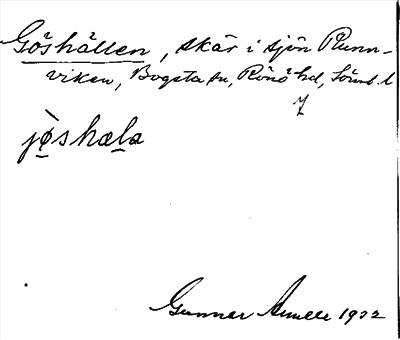 Göshällen, skär i sjön Runn-
viken, Bogsta sn, Rönö hd, Söml. l
7
jö̀shæla
Gunnar Amelle 1932